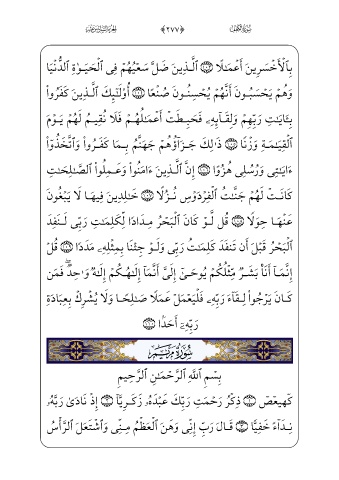 سُورَةُ الكَهْفِ ﴿٢٧٧﴾
بِٱلْأَخْسَرِينَ أَعْمَـٰلًا ۝ ٱلَّذِينَ ضَلَّ سَعْيُهُمْ فِى ٱلْحَيَوٰةِ ٱلدُّنْيَا
وَهُمْ يَحْسَبُونَ أَنَّهُمْ يُحْسِنُونَ صُنْعًا ۝ أُو۟لَـٰٓئِكَ ٱلَّذِينَ كَفَرُوا۟
بِـَٔايَـٰتِ رَبِّهِمْ وَلِقَآئِهِۦ فَحَبِطَتْ أَعْمَـٰلُهُمْ فَلَا نُقِيمُ لَهُمْ يَوْمَ
ٱلْقِيَـٰمَةِ وَزْنًا ۝ ذَٰلِكَ جَزَآؤُهُمْ جَهَنَّمُ بِمَا كَفَرُوا۟ وَٱتَّخَذُوٓا۟
ءَايَـٰتِى وَرُسُلِى هُزُوًا ۝ إِنَّ ٱلَّذِينَ ءَامَنُوا۟ وَعَمِلُوا۟ ٱلصَّـٰلِحَـٰتِ
كَانَتْ لَهُمْ جَنَّـٰتُ ٱلْفِرْدَوْسِ نُزُلًا ۝ خَـٰلِدِينَ فِيهَا لَا يَبْغُونَ
عَنْهَا حِوَلًا ۝ قُل لَّوْ كَانَ ٱلْبَحْرُ مِدَادًا لِّكَلِمَـٰتِ رَبِّى لَنَفِدَ
ٱلْبَحْرُ قَبْلَ أَن تَنفَدَ كَلِمَـٰتُ رَبِّى وَلَوْ جِئْنَا بِمِثْلِهِۦ مَدَدًا ۝ قُلْ
إِنَّمَآ أَنَا۠ بَشَرٌ مِّثْلُكُمْ يُوحَىٰٓ إِلَىَّ أَنَّمَآ إِلَـٰهُكُمْ إِلَـٰهٌ وَٰحِدٌ ۖ فَمَن
كَانَ يَرْجُوا۟ لِقَآءَ رَبِّهِۦ فَلْيَعْمَلْ عَمَلًا صَـٰلِحًا وَلَا يُشْرِكْ بِعِبَادَةِ
رَبِّهِۦٓ أَحَدًۢا ۝
سُورَةُ مَرْيَمَ
بِسْمِ ٱللَّهِ ٱلرَّحْمَـٰنِ ٱلرَّحِيمِ
كٓهيعٓصٓ ۝ ذِكْرُ رَحْمَتِ رَبِّكَ عَبْدَهُۥ زَكَرِيَّآ ۝ إِذْ نَادَىٰ رَبَّهُۥ
نِدَآءً خَفِيًّا ۝ قَالَ رَبِّ إِنِّى وَهَنَ ٱلْعَظْمُ مِنِّى وَٱشْتَعَلَ ٱلرَّأْسُ